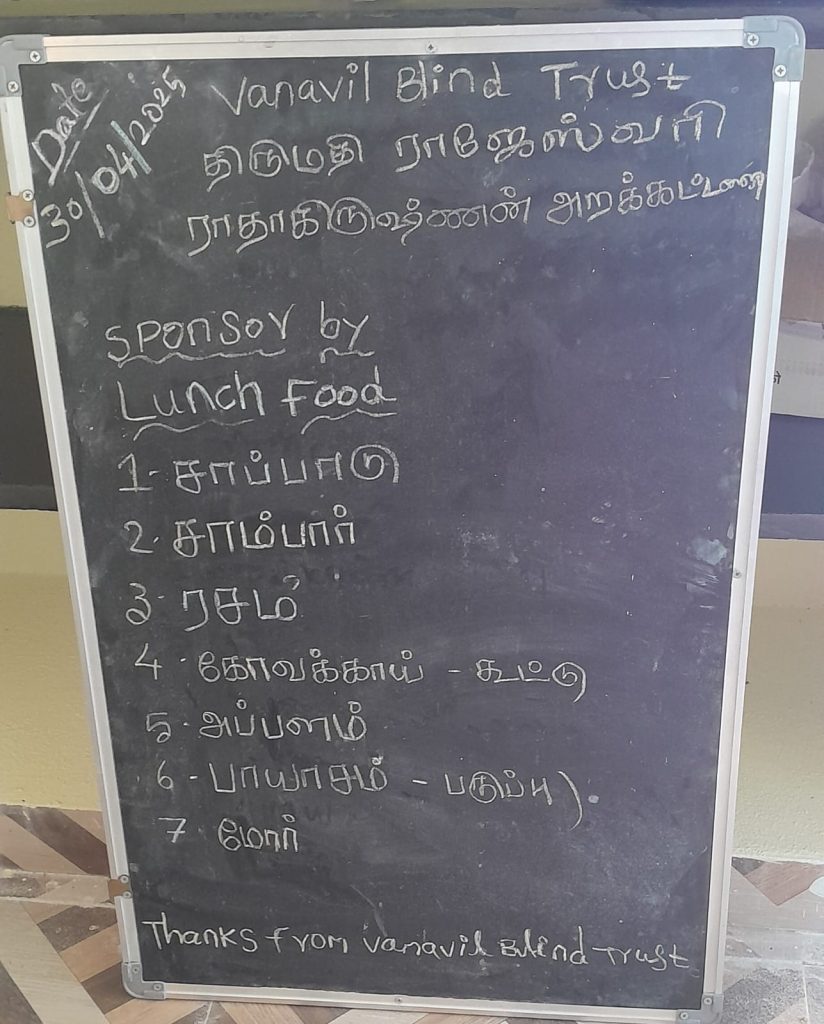 Date
30/04/2025
Vanavil Blind Trust
திருமதி ராஜேஸ்வரி
ராதாகிருஷ்ணன் அறக்கட்டளை
Sponsor by
Lunch Food
1- சாப்பாடு
2. சாம்பார்
3. ரசம்
4 - கோவக்காய் - கூட்டு
5 - அப்பளம்
6 - பாயாசம் - பருப்பு).
7 மோர்
Thanks from vanavil Blind Trust